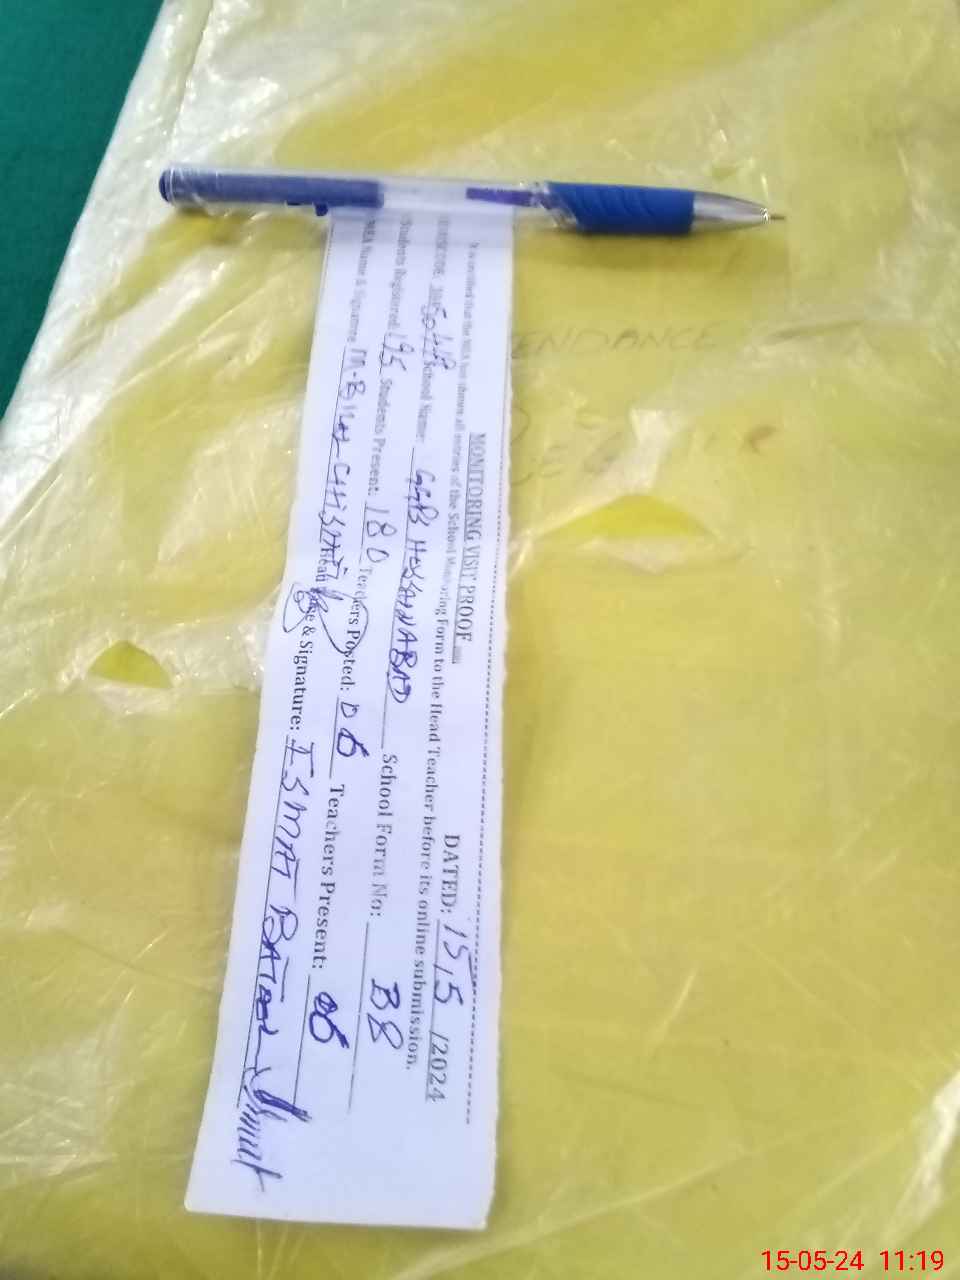 MONITORING VISIT PROOF
DATED: 15/5/2024
It is certified that the MEA has shown all entries of the School Monitoring Form to the Head Teacher before its online submission.
School Name: HUSSAINABAD School Form No: B8
Students Registered: 195 Students Present: 180 Teachers Posted: 06 Teachers Present: 06
MEA Name & Signature & Signature: ISMAT BATOOL
ENDANCE
15-05-24 11:19